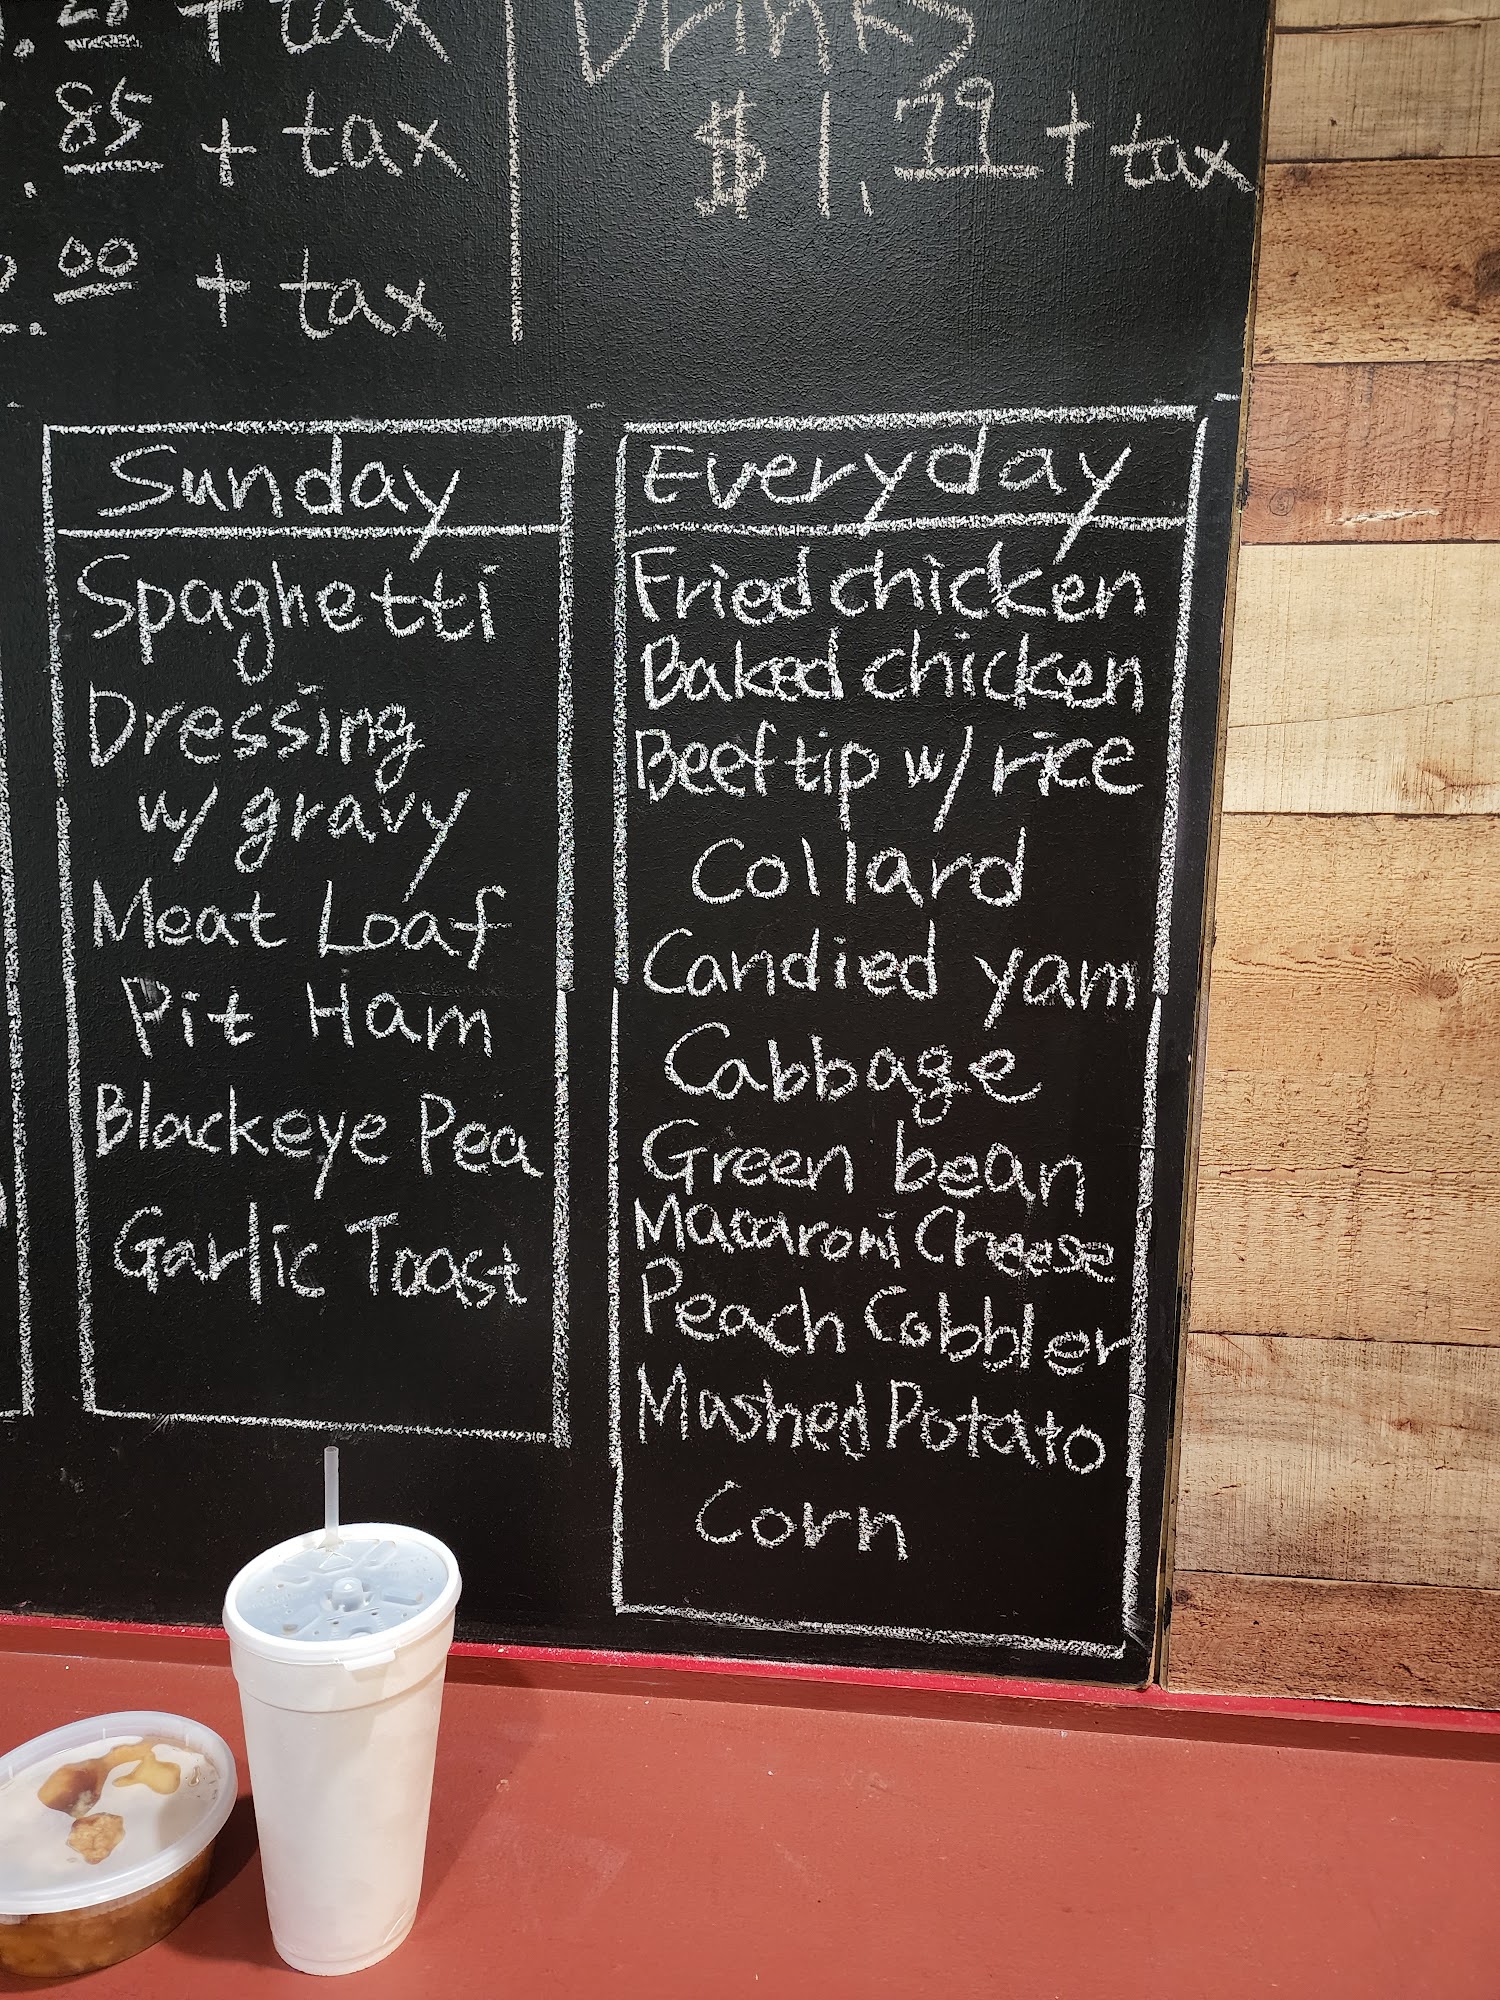 + tax
Drinks
.85 + tax
$1.79 + tax
.00 + tax
Sunday
Spaghetti
Dressing
w/ gravy
Meat Loaf
Pit Ham
Blackeye Pea
Garlic Toast
Everyday
Fried chicken
Baked chicken
Beef tip w/ rice
Collard
Candied yam
Cabbage
Green bean
Macaroni Cheese
Peach Cobbler
Mashed Potato
Corn